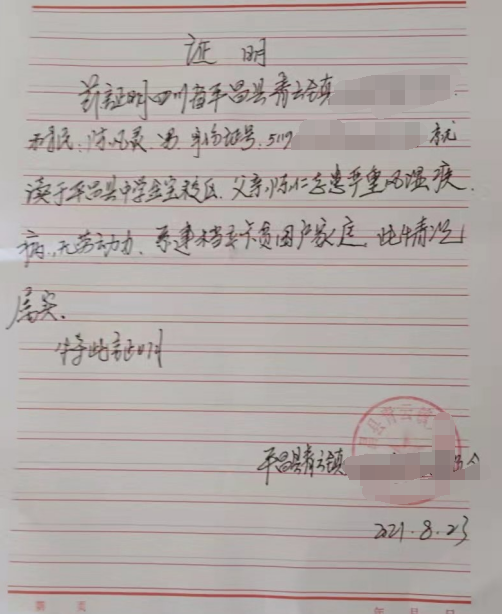 证明
兹证明四川省平昌县青云镇
村民,陈 灵 男 身份证号,5119 就
读于平昌县中学金宝校区,父亲陈仁志患严重风湿疾
病,无劳动力、系建档立卡贫困户家庭,此情况
属实.
特此证明
县青云镇
平昌县青云镇
2021.8.23
第 页
年 月 日